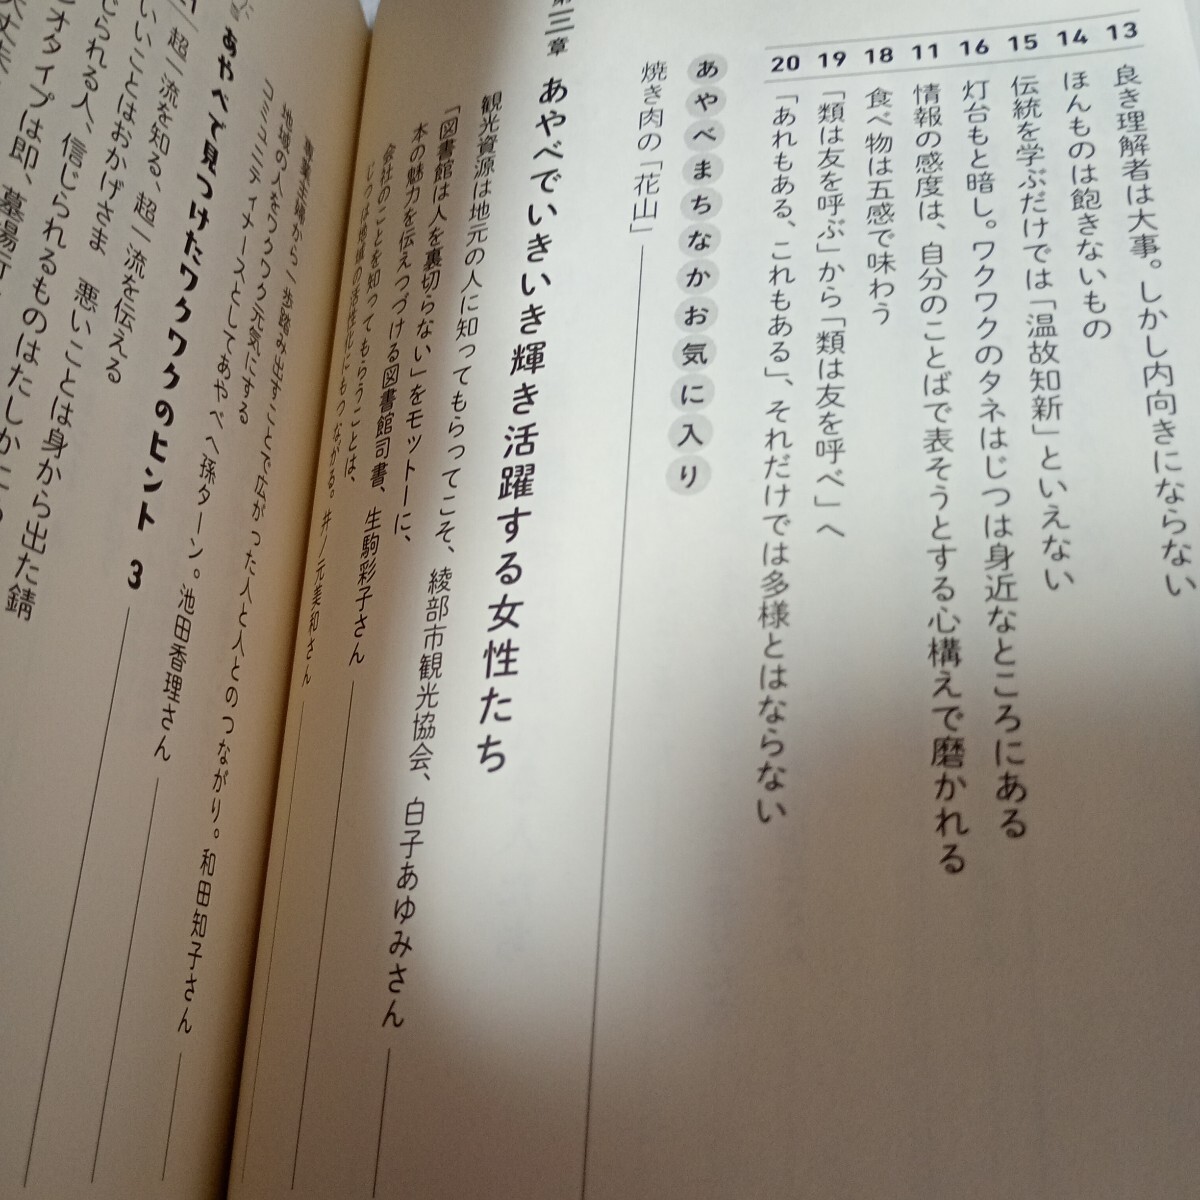 13 良き理解者は大事。しかし内向きにならない
14 ほんものは飽きないもの
15 伝統を学ぶだけでは「温故知新」といえない
16 灯台もと暗し。ワクワクのタネはじつは身近なところにある
11 情報の感度は、自分のことばで表そうとする心構えで磨かれる
18 食べ物は五感で味わう
19 「類は友を呼ぶ」から「類は友を呼べ」へ
20 「あれもある、これもある」、それだけでは多様とはならない
あやべまちなかお気に入り
焼き肉の「花山」
第三章 あやべでいきいき輝き活躍する女性たち
観光資源は地元の人に知ってもらってこそ、綾部市観光協会、白子あゆみさん
「図書館は人を裏切らない」をモットーに、
本の魅力を伝えつづける図書館司書、生駒彩子さん
会社のことを知ってもらうことは、
じつは地域の活性化にもつながる。井ノ元美和さん
専業主婦から一歩踏み出すことで広がった人と人とのつながり。和田知子さん
地域の人をワクワク元気にする
コミュニティナースとしてあやべへ孫ターン。池田香理さん
あやべで見つけたワクワクのヒント 3
超一流を知る、超一流を伝える
いいことはおかげさま 悪いことは身から出た錆
じられる人、信じられるものはたしかに
オタイプは即、墓場行